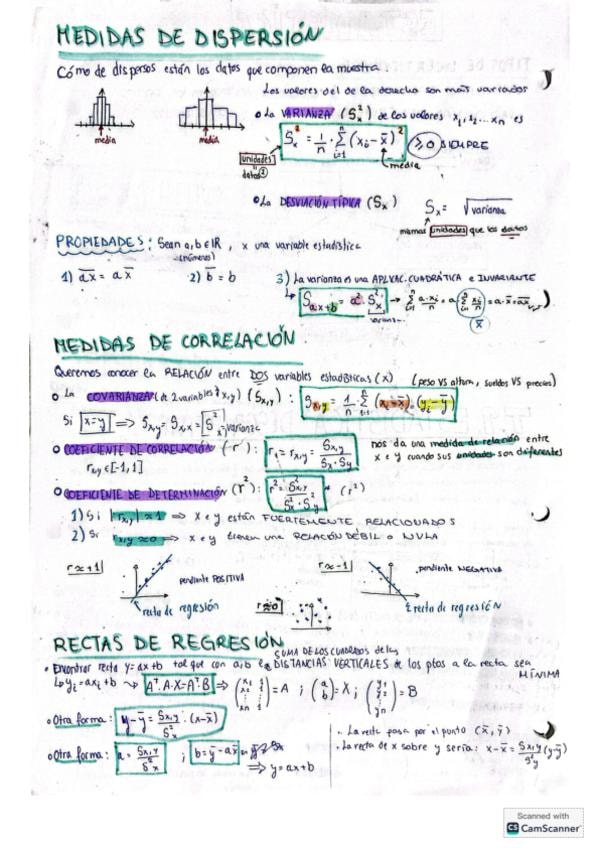 MEDIDAS DE DISPERSIÓN
Cómo de dispersos están los datos que componen la muestra.
Los valores del de la derecha son más variados
media
media
• La VARIANZA (Sx²) de los valores x₁, x₂... xn es
Sx² = 1/n · Σ(i=1, n) (xi - x̄)² ≥ 0 SIEMPRE
unidades datos²
media
• La DESVIACIÓN TÍPICA (Sx)
Sx = √varianza
mismas unidades que los datos
PROPIEDADES: Sean a, b ∈ ℝ, x una variable estadística
(números)
1) a̅x̅ = a x̅
2) b̅ = b
3) La varianza es una APLICAC. CUADRÁTICA e INVARIANTE
↳ S²ax+b = a² · S²x → Σ(i=1, n) a·xi/n = a Σ(i=1, n) xi/n = a·x̄ = a̅x̅
varianz
x̄
MEDIDAS DE CORRELACIÓN
Queremos conocer la RELACIÓN entre DOS variables estadísticas (x) (peso VS altura, sueldos VS precios)
• La COVARIANZA (de 2 variables x, y) (Sx,y): Sx,y = 1/n · Σ(i=1, n) (xi - x̄)·(yi - ȳ)
Si x=y ⇒ Sx,y = Sx,x = S²x = varianza
• COEFICIENTE DE CORRELACIÓN (r): r = rx,y = Sx,y / Sx·Sy
nos da una medida de relación entre
x e y cuando sus unidades son diferentes
rx,y ∈ [-1,1]
• COEFICIENTE DE DETERMINACIÓN (r²): r² = S²x,y / S²x·S²y (r²)
1) Si |rx,y| ≈ 1 ⇒ x e y están FUERTEMENTE RELACIONADOS
2) Si rx,y ≈ 0 ⇒ x e y tienen una RELACIÓN DÉBIL o NULA
r ≈ +1
pendiente POSITIVA
recta de regresión
r ≈ 0
r ≈ -1
pendiente NEGATIVA
recta de regresión
RECTAS DE REGRESIÓN
SUMA DE LOS CUADRADOS de las
• Encontrar recta y = ax + b tal que con a, b DISTANCIAS VERTICALES de los ptos a la recta sea MÍNIMA
↳ yi = axi + b ⇝ Aᵀ·A·X = Aᵀ·B ⇒ (x₁ 1, x₂ 1, ⋮ ⋮, xn 1) = A ; (a b) = X ; (y₁ y₂ ⋮ yn) = B
• Otra forma: y - ȳ = Sx,y / S²x · (x - x̄)
• Otra forma: a = Sx,y / S²x ; b = ȳ - a x̄
⇒ y = ax + b
• La recta pasa por el punto (x̄, ȳ)
• La recta de x sobre y sería: x - x̄ = Sx,y / S²y (y - ȳ)
Scanned with
CS CamScanner